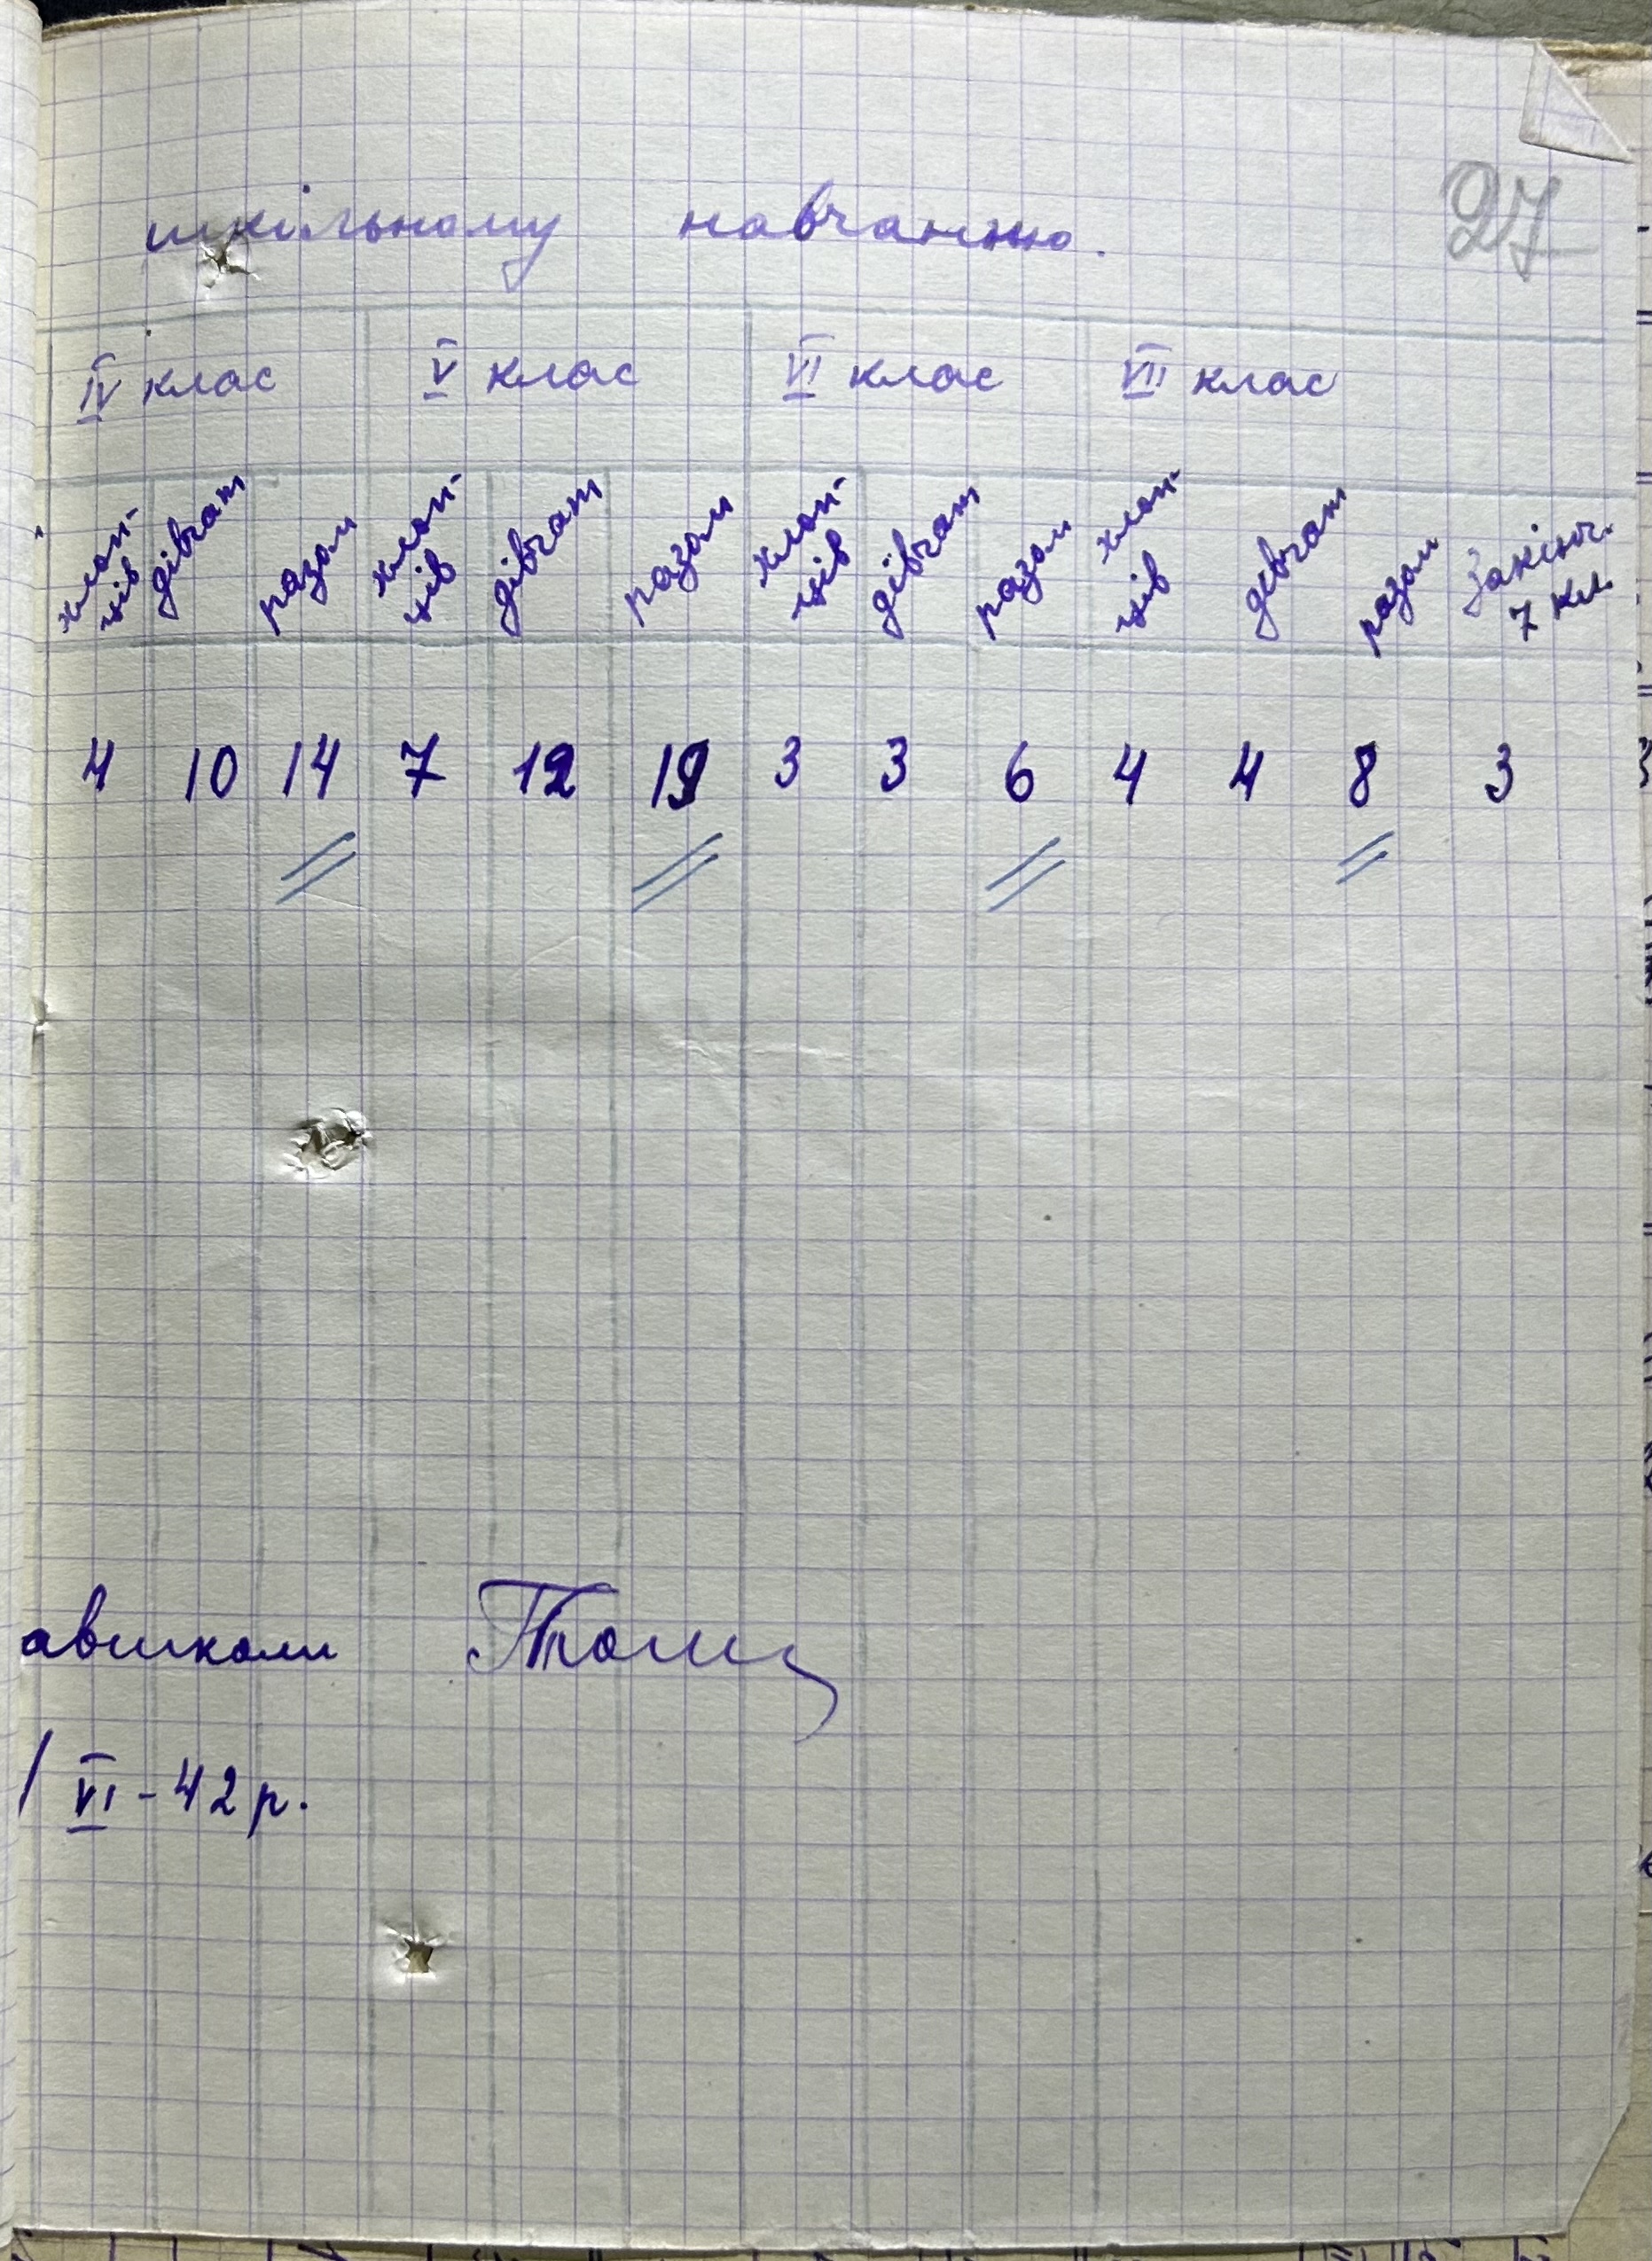 27
шкільному навчанню.
IV клас V клас VI клас VII клас
хлоп-
ців дівчат разом хлоп-
ців дівчат разом хлоп-
ців дівчат разом хлоп-
ців дівчат разом Закінч.
7 кл.
4 10 14 7 12 19 3 3 6 4 4 8 3
авшколи
/ VI - 42 р.